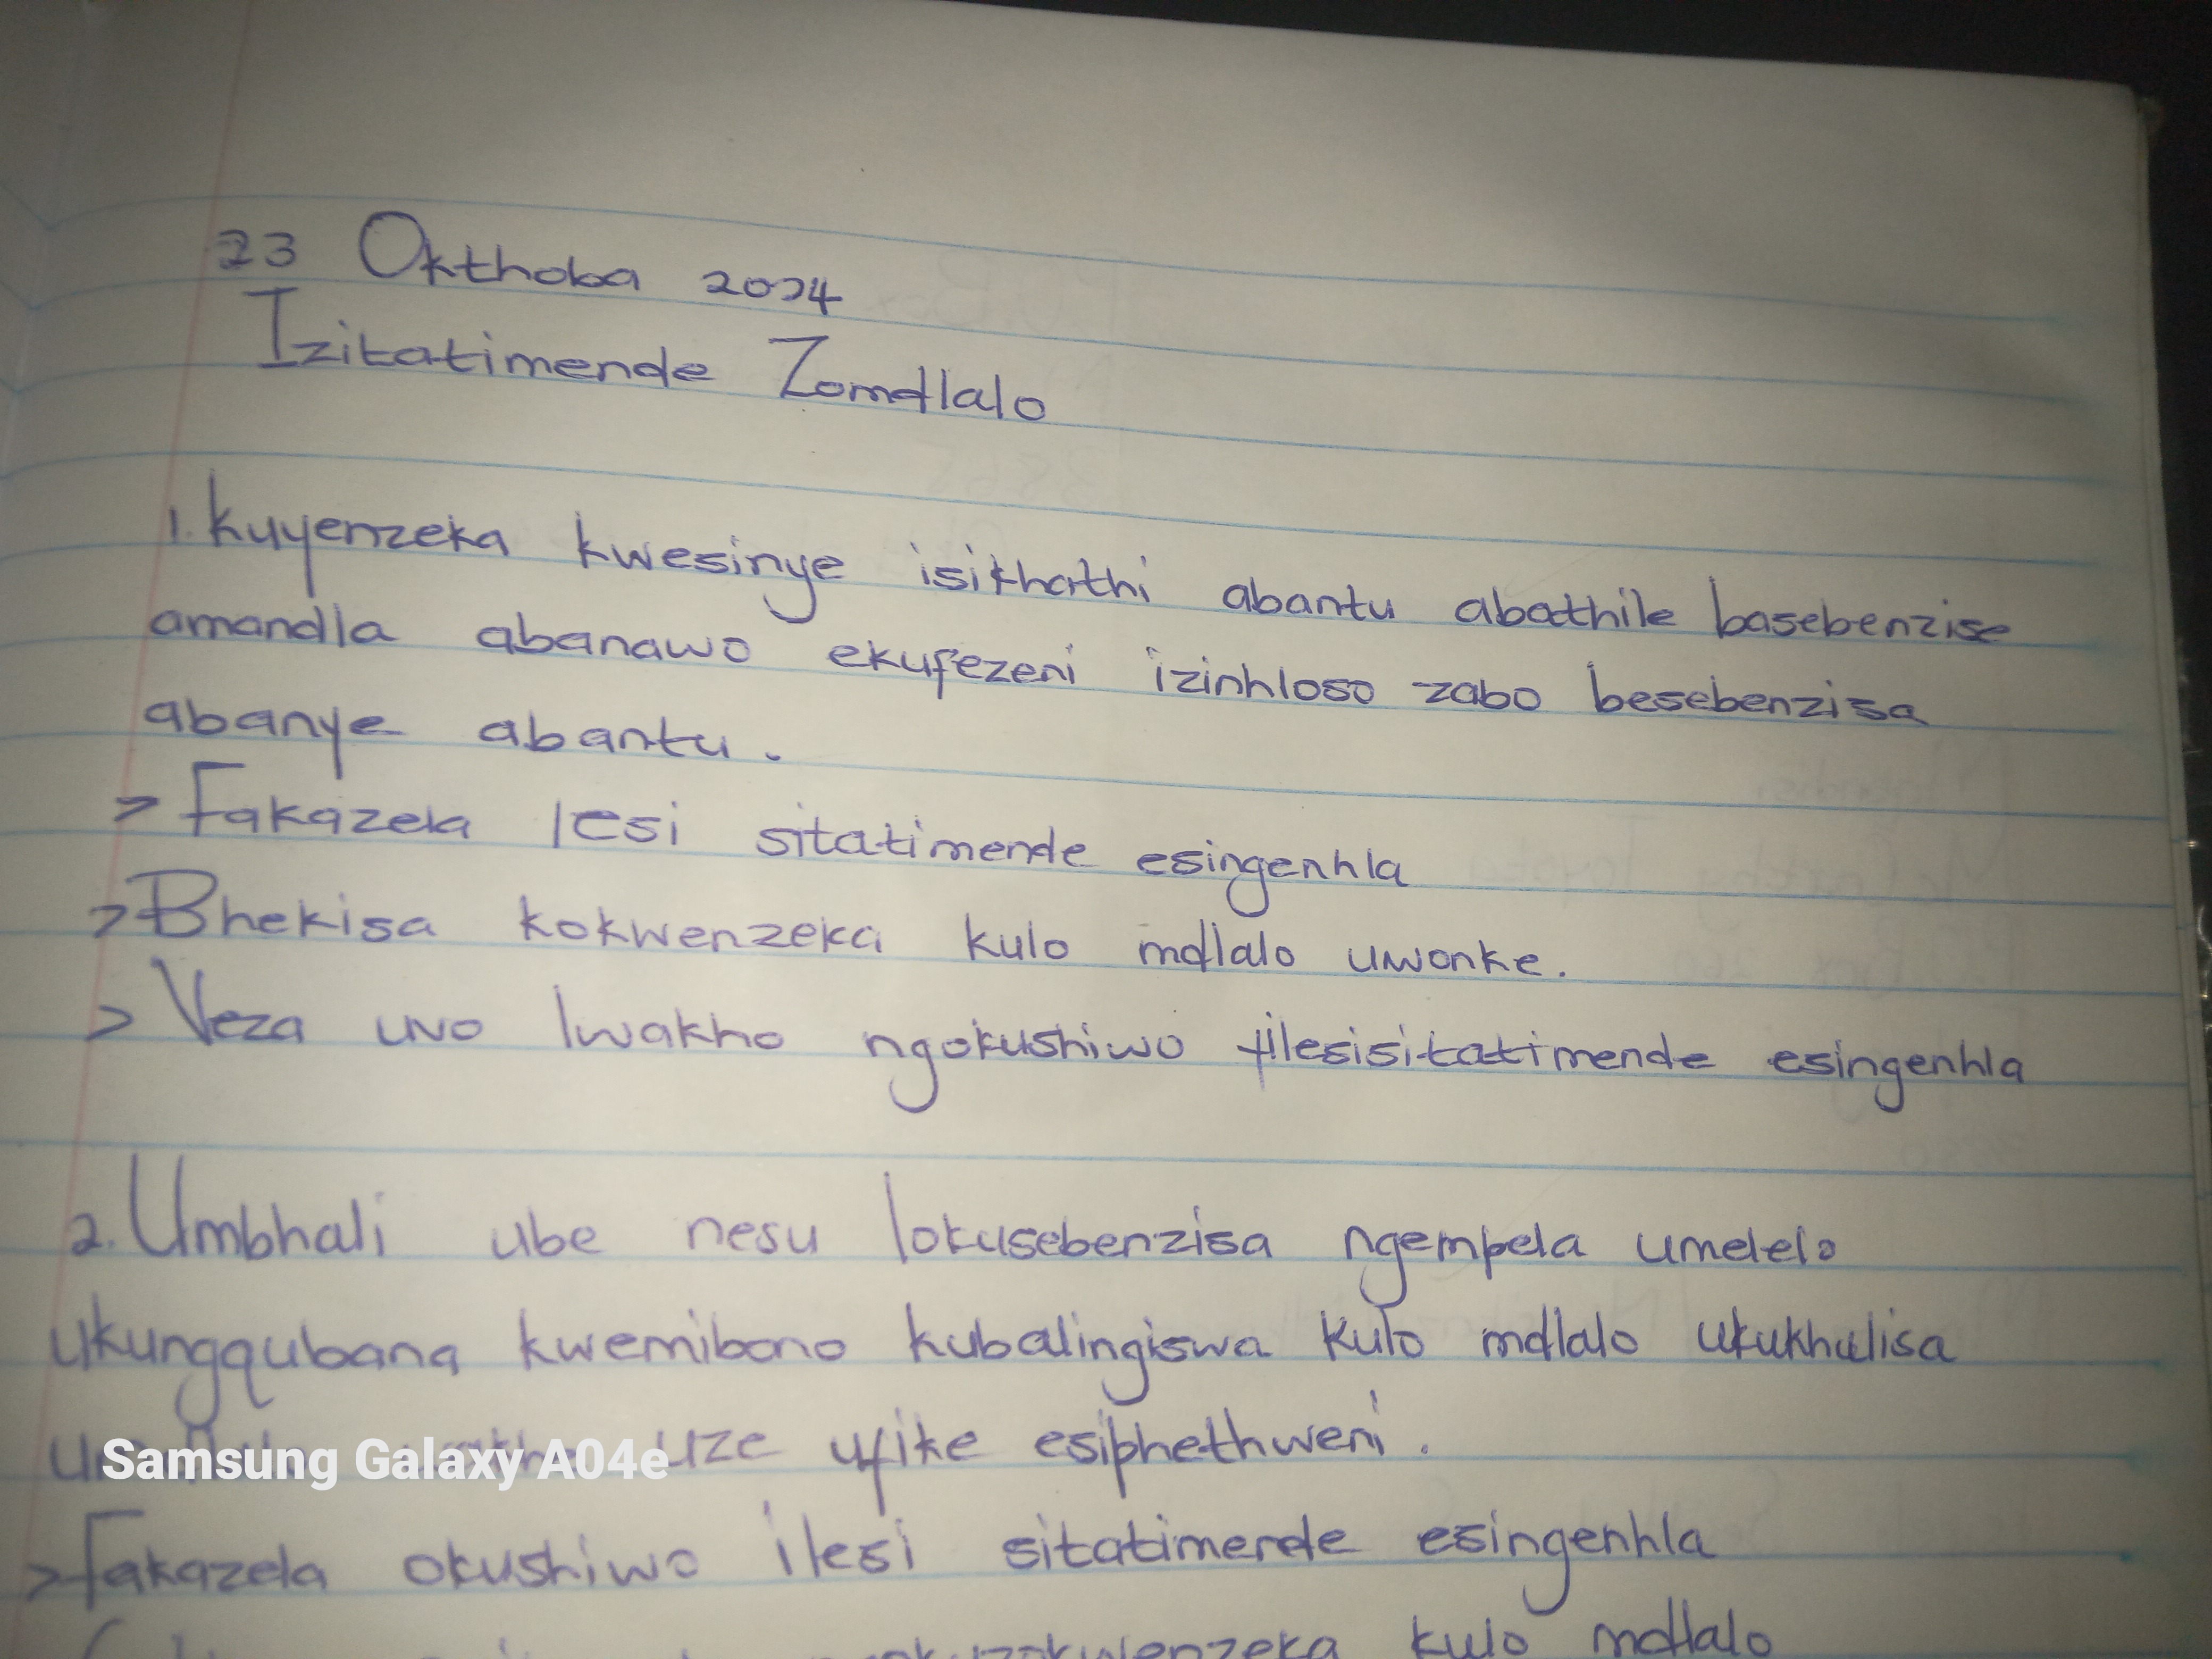 23 Okthoba 2024
Izitatimende Zomdlalo
1. Kuyenzeka kwesinye isikhathi abantu abathile basebenzise
amandla abanawo ekufezeni izinhloso zabo besebenzisa
abanye abantu.
> Fakazela lesi sitatimende esingenhla
> Bhekisa kokwenzeka kulo mdlalo uwonke.
> Veza uvo lwakho ngokushiwo ilesisitatimende esingenhla
2. Umbhali ube nesu lokusebenzisa ngempela umelelo
ukungqubana kwemibono kubalingiswa kulo mdlalo ukukhulisa
uze ufike esiphethweni.
> Fakazela okushiwo ilesi sitatimende esingenhla
kulo mdlalo
Samsung Galaxy A04e